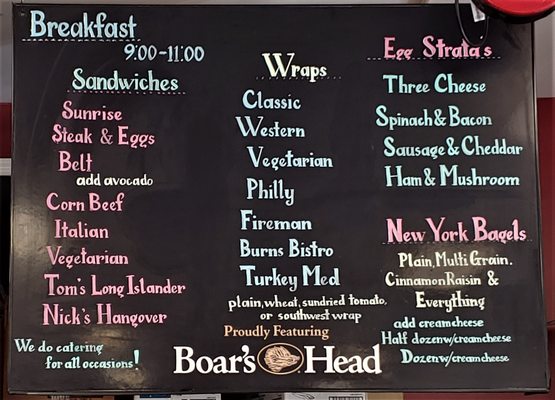 Breakfast
9:00-11:00
Sandwiches
Sunrise
Steak & Eggs
Belt
add avocado
Corn Beef
Italian
Vegetarian
Tom's Long Islander
Nick's Hangover
We do catering
for all occasions!
Wraps
Classic
Western
Vegetarian
Philly
Fireman
Burns Bistro
Turkey Med
plain, wheat, sundried tomato,
or southwest wrap
Proudly Featuring
Boar's Head
Egg Stratas
Three Cheese
Spinach & Bacon
Sausage & Cheddar
Ham & Mushroom
New York Bagels
Plain, Multi Grain,
Cinnamon Raisin &
Everything
add creamcheese
Half dozen w/creamcheese
Dozen w/creamcheese